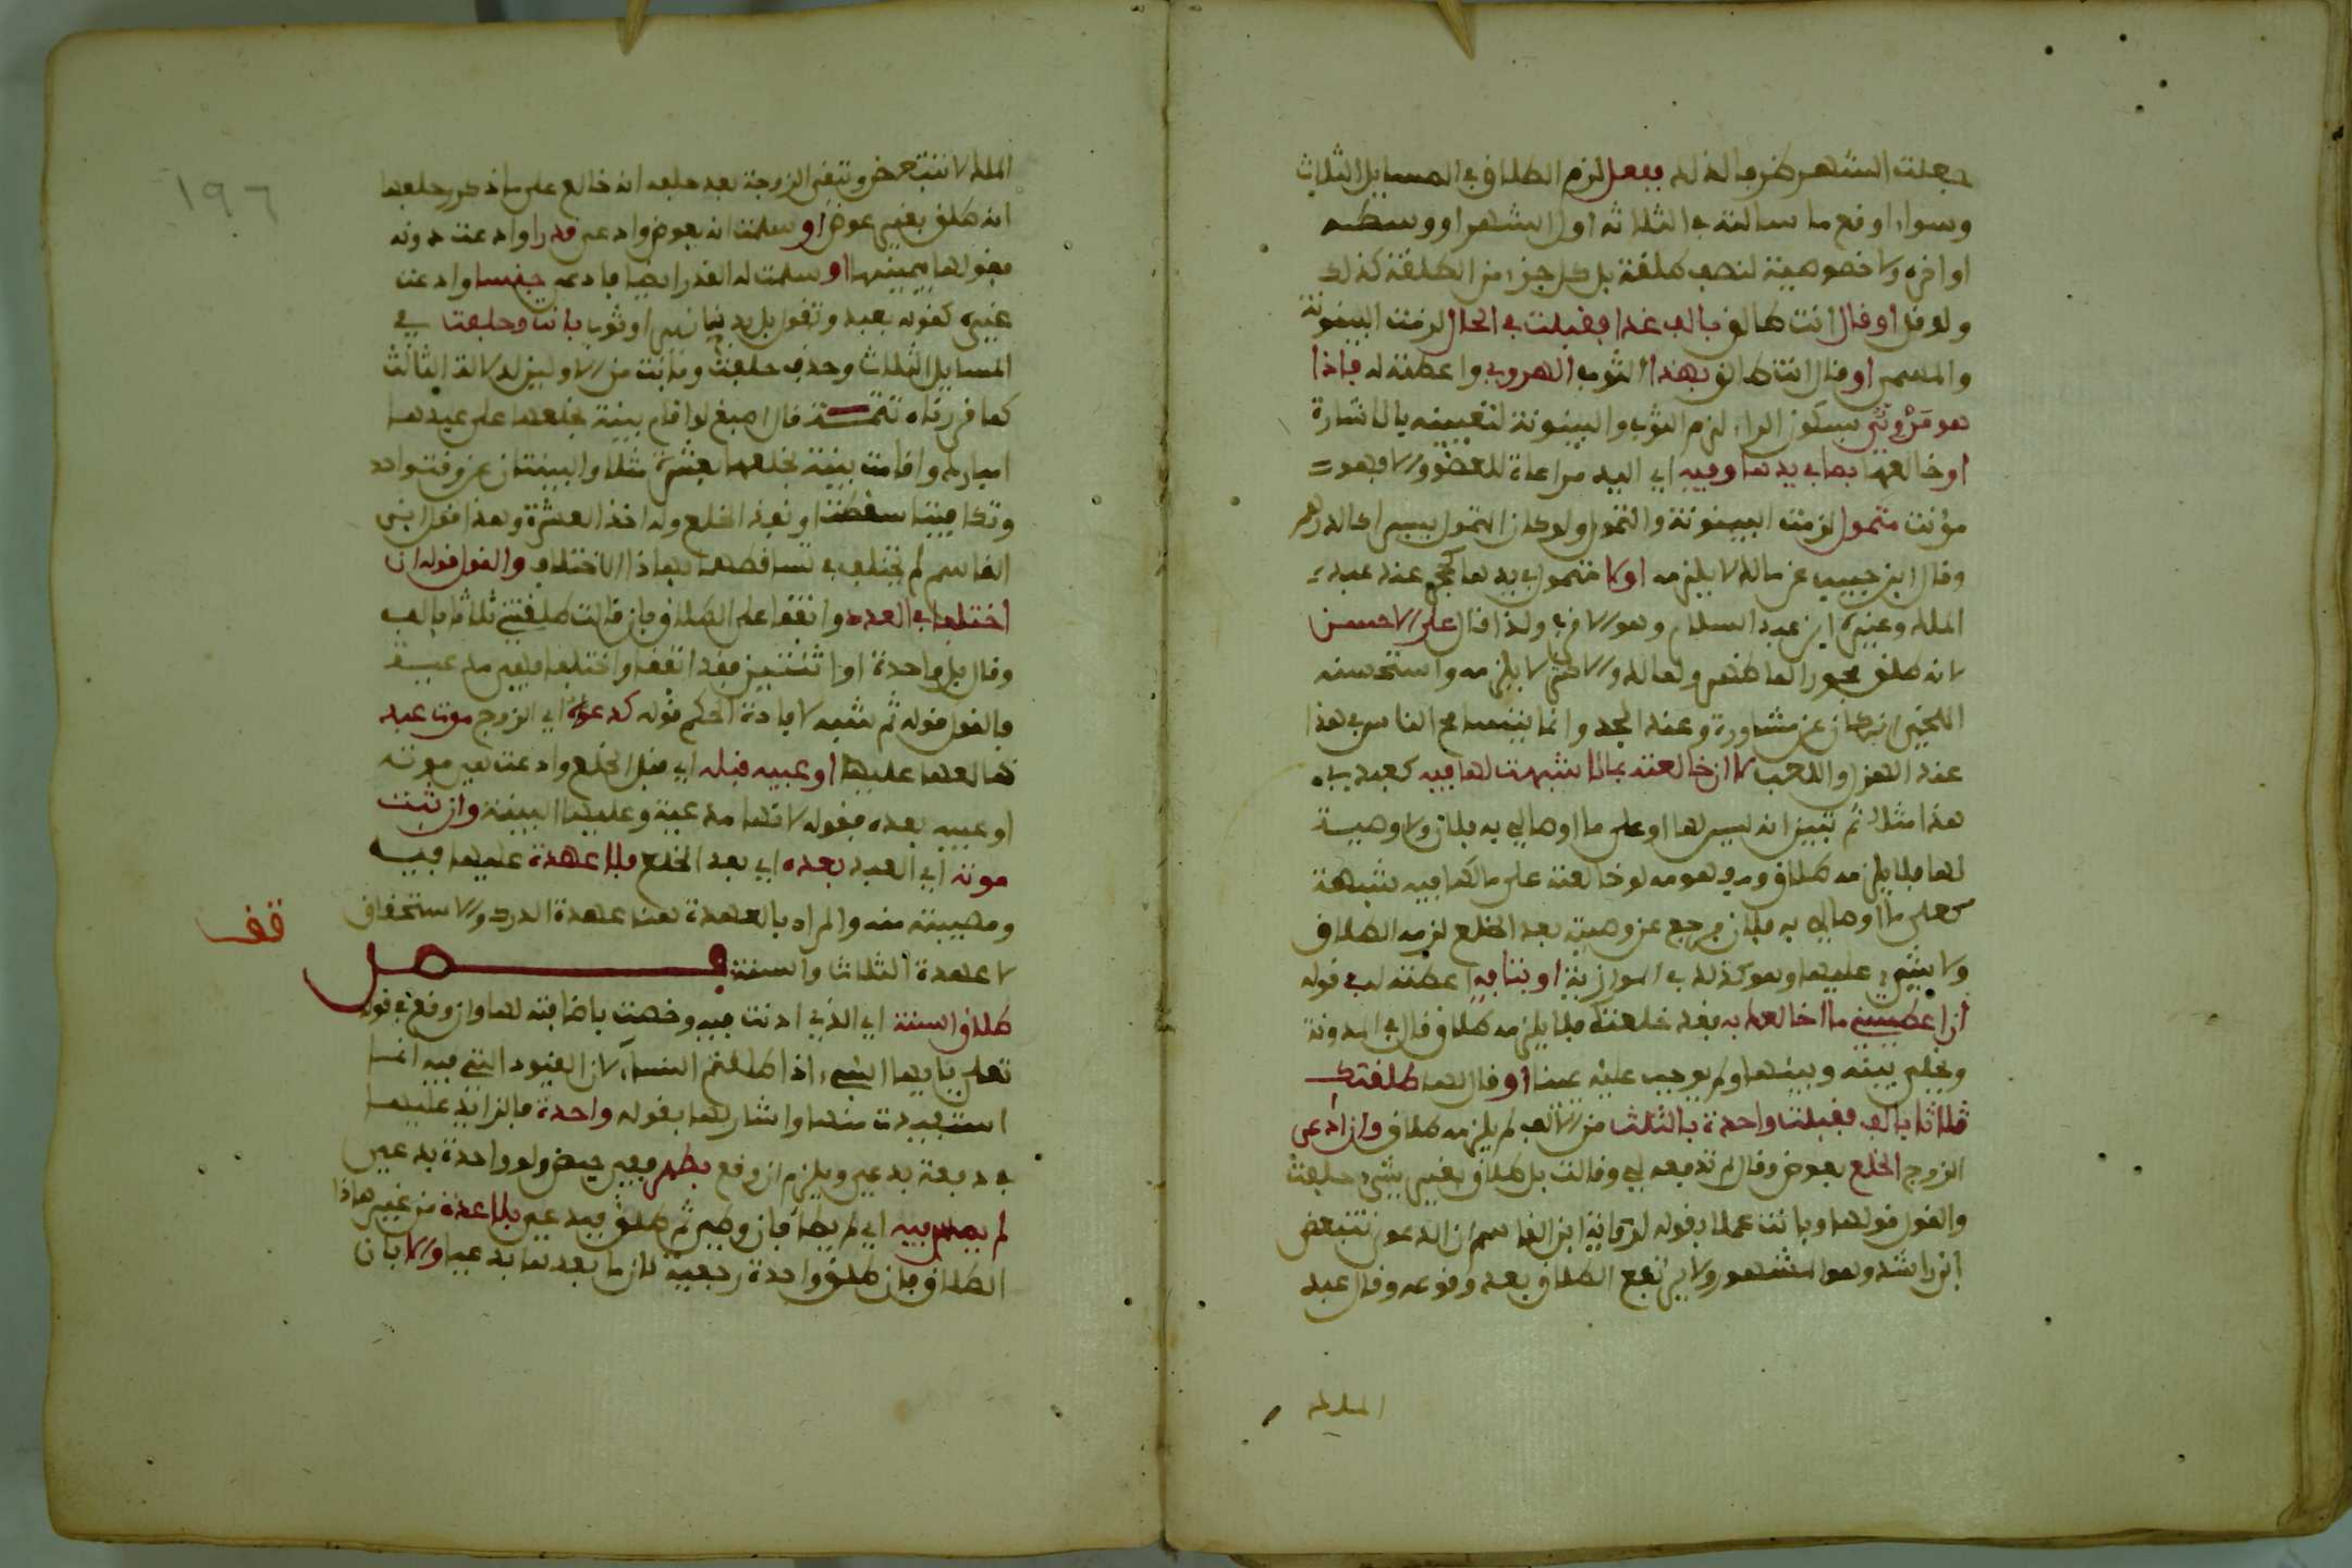 جعلت الشهر ظرفا لذلك ففعل لزم الطلاق في المسايل الثلاث
وسواء اوقع ما سالته في الثلاثة اول الشهر او وسطه
او اخره ولا خصوصية لنصف طلقة بل كل جزء من الطلقة كذلك
ولو قل او قال انت طالق بالف غدا فقبلت في الحال لزمت البينونة
والمسمى او قال انت طالق بهذا الثوب الهروي واعطته له فاذا
هو مَرْوِيّ بسكون الراء لزم الثوب والبينونة لتعيينه بالاشارة
او خالعها بما في يدها وفيه اي اليد مراعاة للعضو والا فهو
مؤنث متمول لزمت البينونة والتمول ولو كان التمول يسير كالدرهم
وقال ابن حبيب عن مالك لا يلزمه او لا متمول في يدها كحجر عند عبد
الملك وغيره ابن عبد السلام وهو الاقرب ولذا قال على الاحسن
لانه طلق مجوزا لما ظنه ولمالك والاكثر لا يلزمه واستحسنه
اللخمي ان كان عن مشاورة وعند الجد وانما يتسامح الناس في هذا
عند الهزل واللعب لا ان خالعته بما لا شبهت لها فيه كعبد في
هذا مثلا ثم تبين انه ليس لها او على ما اوصالي به فلان ولا وصية
لها فلا يلزمه طلاق ومفهومه لو خالعته على ما لها فيه شبهة
كعلى ما اوصالي به فلان فرجع عن وصيته بعد الخلع لزمه الطلاق
ولا شيء عليها وهو كذلك في الموازية او بتافه اعطته له في قوله
ان اعطيتني ما اخالعك به فقد خلعتك فلا يلزمه طلاق قال في المدونة
ويخلى بينه وبينها ولم يوجب عليه يمينا او قال لها طلقتك
ثلاثا بالف فقبلت واحدة بالثلث من الالف لم يلزمه طلاق وان ادعى
الزوج الخلع بعوض وقال لم تدفعه لي وقالت بل طلاق بغير شيء حلفت
والقول قولها وبانت عملا بقوله لرواية ابن القاسم ان الدعوى تتبعض
ابن راشد وهو المشهور ولا يرتفع الطلاق بعد وقوعه وقال عبد
الملك
الملك لا تتبعض وتبقى الزوجة بعد حلفه انه خالع على ما ذكر وحلفها
انه طلق بغير عوض او سلمت انه بعوض وادعى قدرا وادعت دونه
فقولها بيمينها او سلمت له القدر ايضا فادعى جنسا وادعت
غيره كقوله بعبد وتقول بل بدينا نير او ثوب بانت وحلفت في
المسايل الثلاث وحذف حلفت وبانت من الاوليين لدلالة الثالث
كما قررناه تتمـــة قال اصبغ لو اقام بينة بخلعها على عبدها
امباركـ واقامت بينة بخلعها بعشرة مثلا والبينتان عن وقت واحد
وتكافيتا سقطتا ونفذ الخلع وله اخذ العشرة وهذا قول ابن
القاسم لم يختلف في تساقطهما بهاذا الاختلاف والقول قوله ان
اختلفا في العدد واتفقا على الطلاق بان قالت طلقتني ثلاثا بالف
وقال بل واحدة او اثنتين فقد اتفقا واختلفا فهي مدعية
فالقول قوله ثم شبه لافادة الحكم قوله كدعواه اي الزوج موت عبد
خالعها عليه او عيبه قبله اي قبل الخلع وادعت هي موته
او عيبه بعده فقوله لانها مدعية وعليها البينة وان ثبت
موته اي العبد بعده اي بعد الخلع فلا عهدة عليها فيه
ومصيبته منه والمراد بالعهدة هنا عهدة الدرك والاستحقاق
قف
لا عهدة الثلاث والسنة فـــــصل
طلاق السنة اي الذي اذنت فيه وخصت باضافته لها وان وقع في قوله
تعلى يايها النبيء اذا طلقتم النساء لان القيود التي فيه انما
استفيدت منها واشار لها بقوله واحدة فالزايد عليها
في دفعة بدعي ويلزم ان وقع بطهر فغير حيض ولو واحدة بدعي
لم يمس فيه اي لم يطا فان وطي ثم طلق فبدعي بلا عدة من غير هاذا
الطلاق فان طلق واحدة رجعية كان ما بعدها بدعيا والا بان